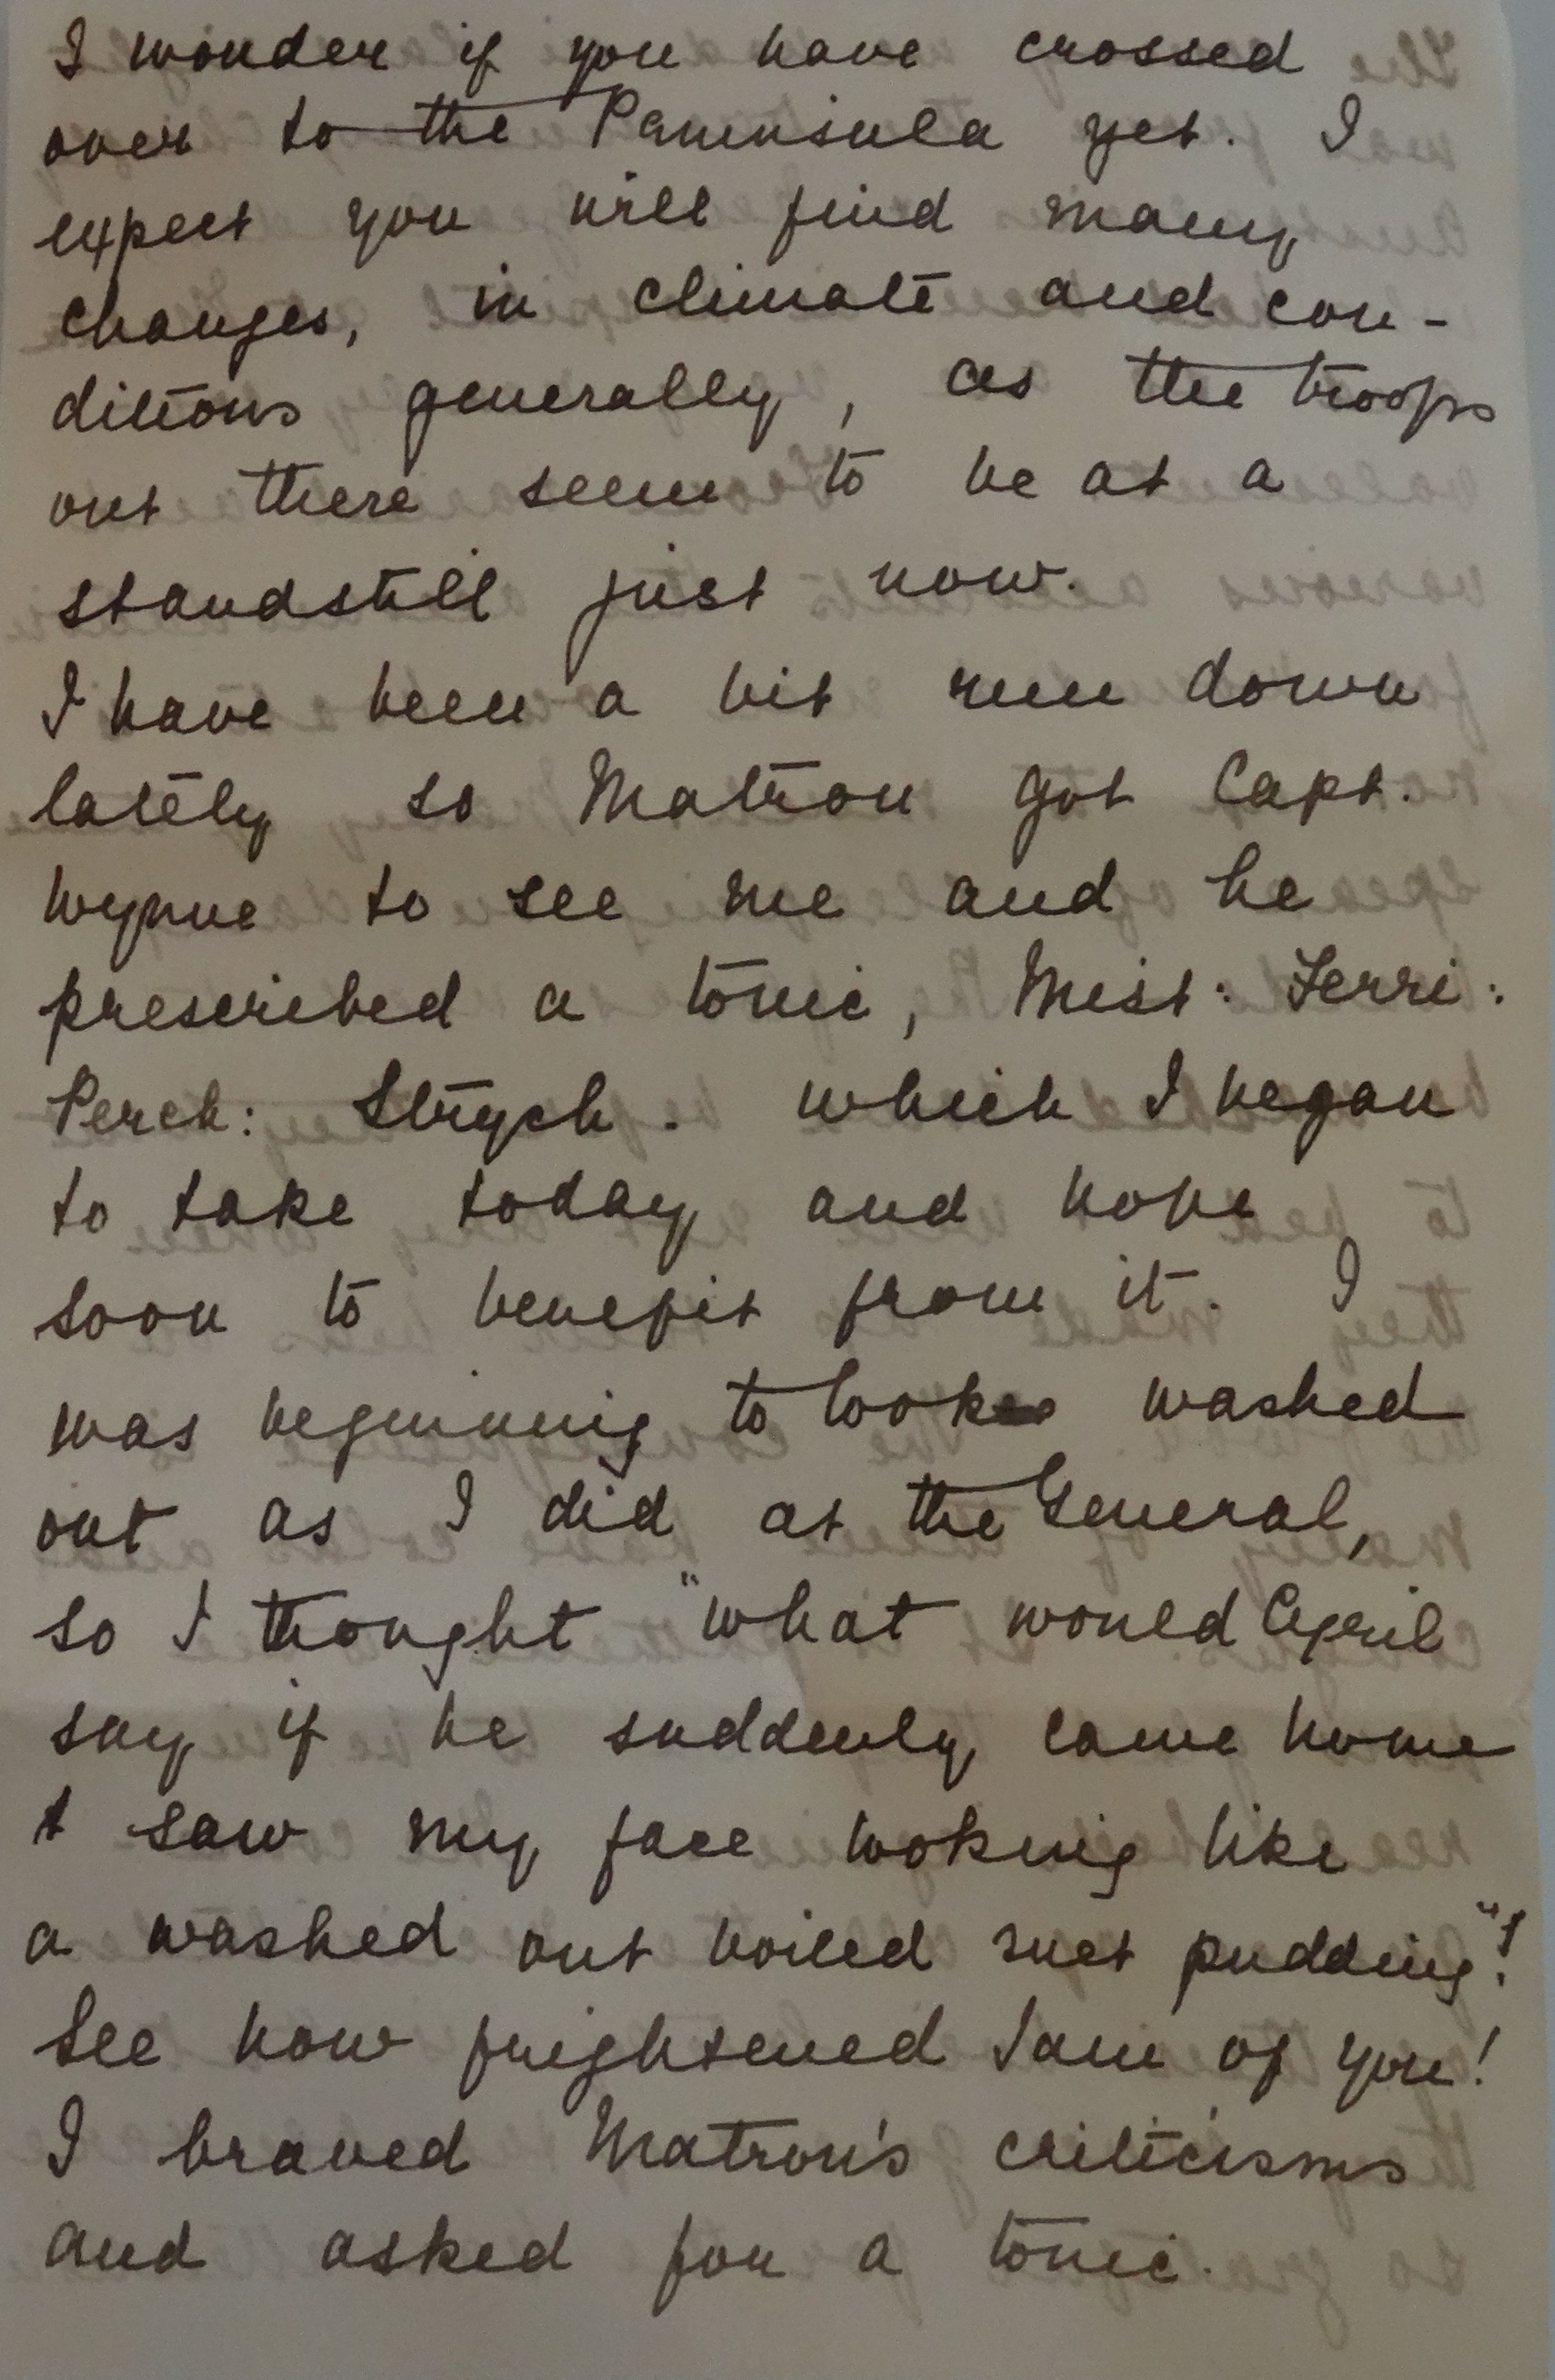 I wonder if you have crossed
over to the Peninsula yet. I
expect you will find many
changes, in climate and con-
ditions generally, as the troops
out there seem to be at a
standstill just now.
I have been a bit run down
lately so Matron got Capt.
Wynne to see me and he
prescribed a tonic, Mist: Ferri:
Perch: Strych. which I began
to take today and hope
soon to benefit from it. I
was beginning to look washed
out as I did at the General,
so I thought "what would April
say if he suddenly came home
& saw my face looking like
a washed out boiled suet pudding"!
See how frightened I am of you!
I braved Matron's criticisms
and asked for a tonic.